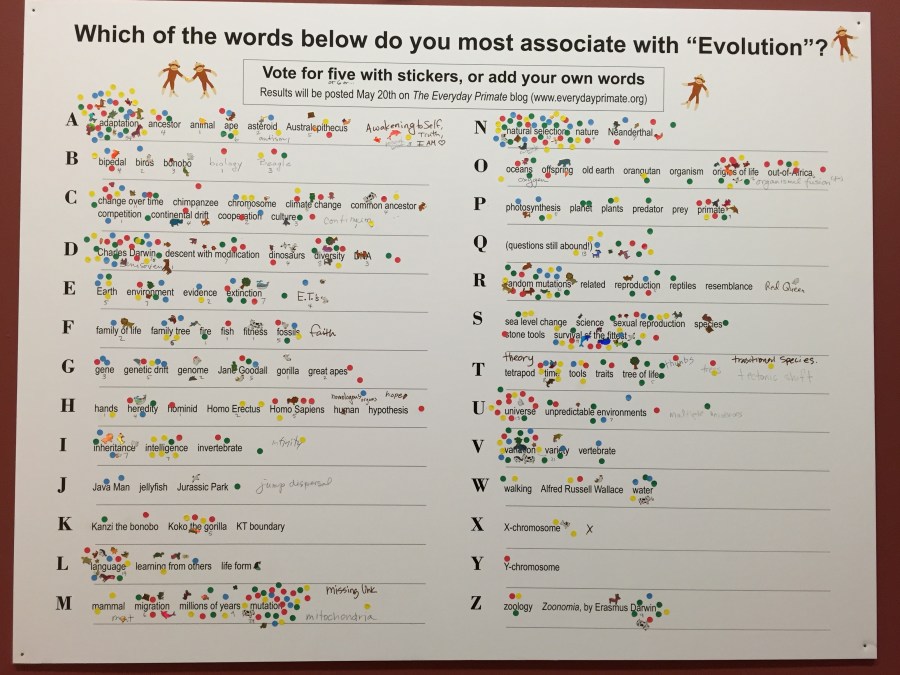 Which of the words below do you most associate with “Evolution”?
Vote for five with stickers, or add your own words
Results will be posted May 20th on The Everyday Primate blog (www.everydayprimate.org)
A adaptation ancestor animal ape asteroid Australopithecus Awakening to Self, Truth, I AM
B bipedal birds bonobo biology Beagle
C change over time chimpanzee chromosome climate change common ancestor
competition continental drift cooperation culture
D Charles Darwin descent with modification dinosaurs diversity DNA
E Earth environment evidence extinction E.T.'s
F family of life family tree fire fish fitness fossils faith
G gene genetic drift genome Jane Goodall gorilla great apes
H hands heredity hominid Homo Erectus Homo Sapiens human hypothesis hope
I inheritance intelligence invertebrate infinity
J Java Man jellyfish Jurassic Park jump dispersal
K Kanzi the bonobo Koko the gorilla KT boundary
L language learning from others life form
M mammal migration millions of years mutation missing link
mitochondria
N natural selection nature Neanderthal
O oceans offspring old earth orangutan organism origins of life out-of-Africa
oxygen
P photosynthesis planet plants predator prey primate
Q (questions still abound!)
R random mutations related reproduction reptiles resemblance Red Queen
S sea level change science sexual reproduction species
stone tools survival of the fittest
T theory
tetrapod time tools traits tree of life tectonic shift
U universe unpredictable environments
V variation variety vertebrate
W walking Alfred Russell Wallace water
X X-chromosome X
Y Y-chromosome
Z zoology Zoonomia, by Erasmus Darwin